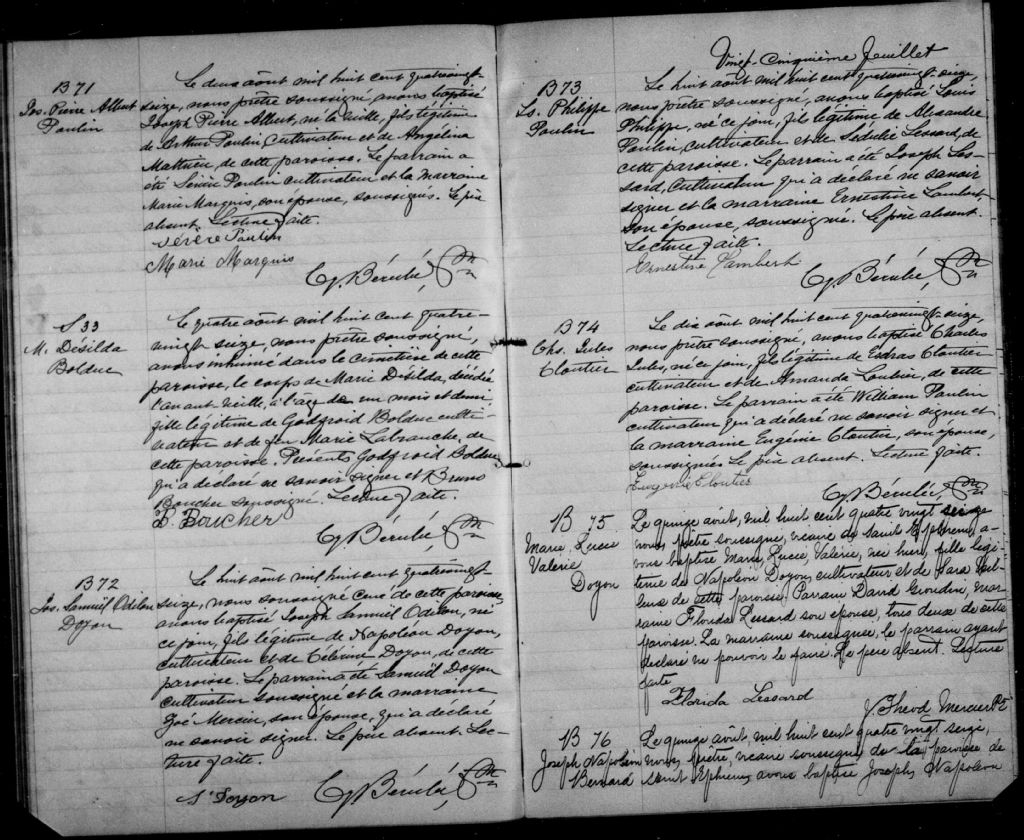 B 71
Jos. Pierre Albert
Poulin
Le deux août mil huit cent quatrevingt-
seize, nous prêtre soussigné, avons baptisé
Joseph Pierre Albert, né la veille, fils légitime
de Arthur Poulin, cultivateur et de Angélina
Mathieu, de cette paroisse. Le parrain a
été Sévère Poulin cultivateur et la marraine
Marie Marquis, son épouse, soussignés. Le père
absent. Lecture faite.
Sévère Poulin
Marie Marquis
Bérubé, Ptre
S 33
M. Désilda
Bolduc
Le quatre août mil huit cent quatre-
vingt seize, nous prêtre soussigné,
avons inhumé dans le cimetière de cette
paroisse, le corps de Marie Désilda, décédée
l'avant veille, à l'âge de un mois et demi,
fille légitime de Godfroid Bolduc culti-
vateur et de feu Marie Labranche, de
cette paroisse. Présents Godfroid Bolduc
qui a déclaré ne savoir signer et Bruno
Boucher soussigné. Lecture faite.
B. Boucher
Bérubé, Ptre
B 72
Jos. Samuël Odilon
Doyon
Le huit août mil huit cent quatrevingt-
seize, nous soussigné Curé de cette paroisse
avons baptisé Joseph Samuël Odilon, né
ce jour, fils légitime de Napoléon Doyon,
cultivateur et de Célérine Doyon, de cette
paroisse. Le parrain a été Samuël Doyon
cultivateur soussigné et la marraine
Zoé Mercier, son épouse, qui a déclaré
ne savoir signer. Le père absent. Lec-
ture faite.
S. Doyon
Bérubé, Ptre
Vingt-cinquième feuillet
B 73
Ls. Philippe
Poulin
Le huit août mil huit cent quatrevingt-seize,
nous prêtre soussigné, avons baptisé Louis
Philippe, né ce jour, fils légitime de Alexandre
Poulin, cultivateur et de Lessard, de
cette paroisse. Le parrain a été Joseph Les-
sard, cultivateur qui a déclaré ne savoir
signer et la marraine Ernestine Lambert,
son épouse, soussignée. Le père absent.
Lecture faite.
Ernestine Lambert
Bérubé, Ptre
B 74
Chs. Jules
Cloutier
Le dix août mil huit cent quatrevingt-seize,
nous prêtre soussigné, avons baptisé Charles
Jules, né ce jour, fils légitime de Esdras Cloutier
cultivateur et de Amanda Loubier, de cette
paroisse. Le parrain a été William Poulin
cultivateur qui a déclaré ne savoir signer et
la marraine Eugénie Cloutier, son épouse,
soussignés Le père absent. Lecture faite.
Eugénie Cloutier
Bérubé, Ptre
B 75
Marie Lucie
Valérie
Doyon
Le quinze août, mil huit cent quatre vingt seize
nous prêtre soussigné, vicaire de Saint Ephrem, a-
vons baptisé Marie, Lucie, Valérie, née hier, fille légi-
time de Napoléon Doyon, cultivateur et de Sara
de cette paroisse. Parrain David, mar-
raine Florida Lessard son épouse, tous deux de cette
paroisse. La marraine soussignée, le parrain ayant
déclaré ne pouvoir le faire. Le père absent. Lecture
faite
Florida Lessard
J. Théod Mercier Ptre
B 76
Joseph Napoléon
Bernard
Le quinze août, mil huit cent quatre vingt seize,
nous Prêtre, vicaire soussigné de la paroisse de
Saint Ephrem, avons baptisé Joseph, Napoléon